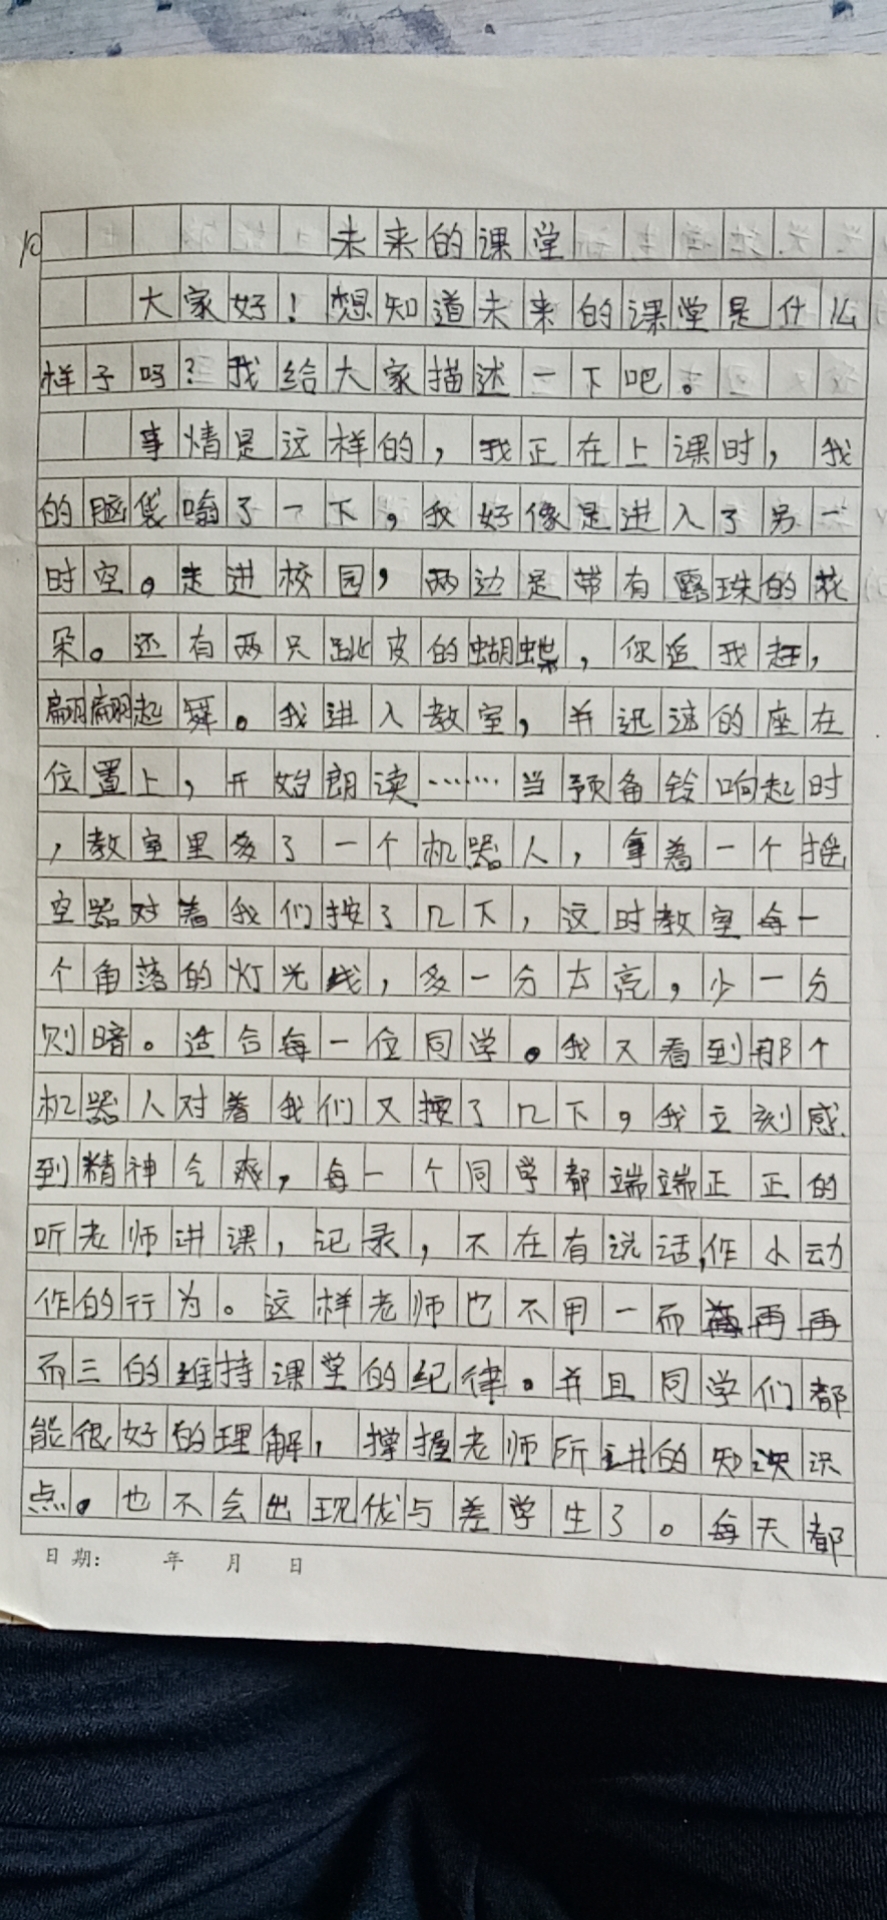 10
未来的课堂
大家好！想知道未来的课堂是什么
样子吗？我给大家描述一下吧。
事情是这样的，我正在上课时，我
的脑袋嗡了一下，我好像是进入了另一
时空。走进校园，两边是带有露珠的花
朵。还有两只跳皮的蝴蝶，你追我赶，
翩翩起舞。我进入教室，并迅速的座在
位置上，开始朗读……当预备铃响起时
，教室里多了一个机器人，拿着一个摇
空器对着我们按了几下，这时教室每一
个角落的灯光线，多一分太亮，少一分
则暗。适合每一位同学。我又看到那个
机器人对着我们又按了几下，我立刻感
到精神气爽，每一个同学都端端正正的
听老师讲课，记录，不在有说话，作小动
作的行为。这样老师也不用一而再再
而三的维持课堂的纪律。并且同学们都
能很好的理解，撑握老师所讲的知识
点。也不会出现优与差学生了。每天都
日期： 年 月 日